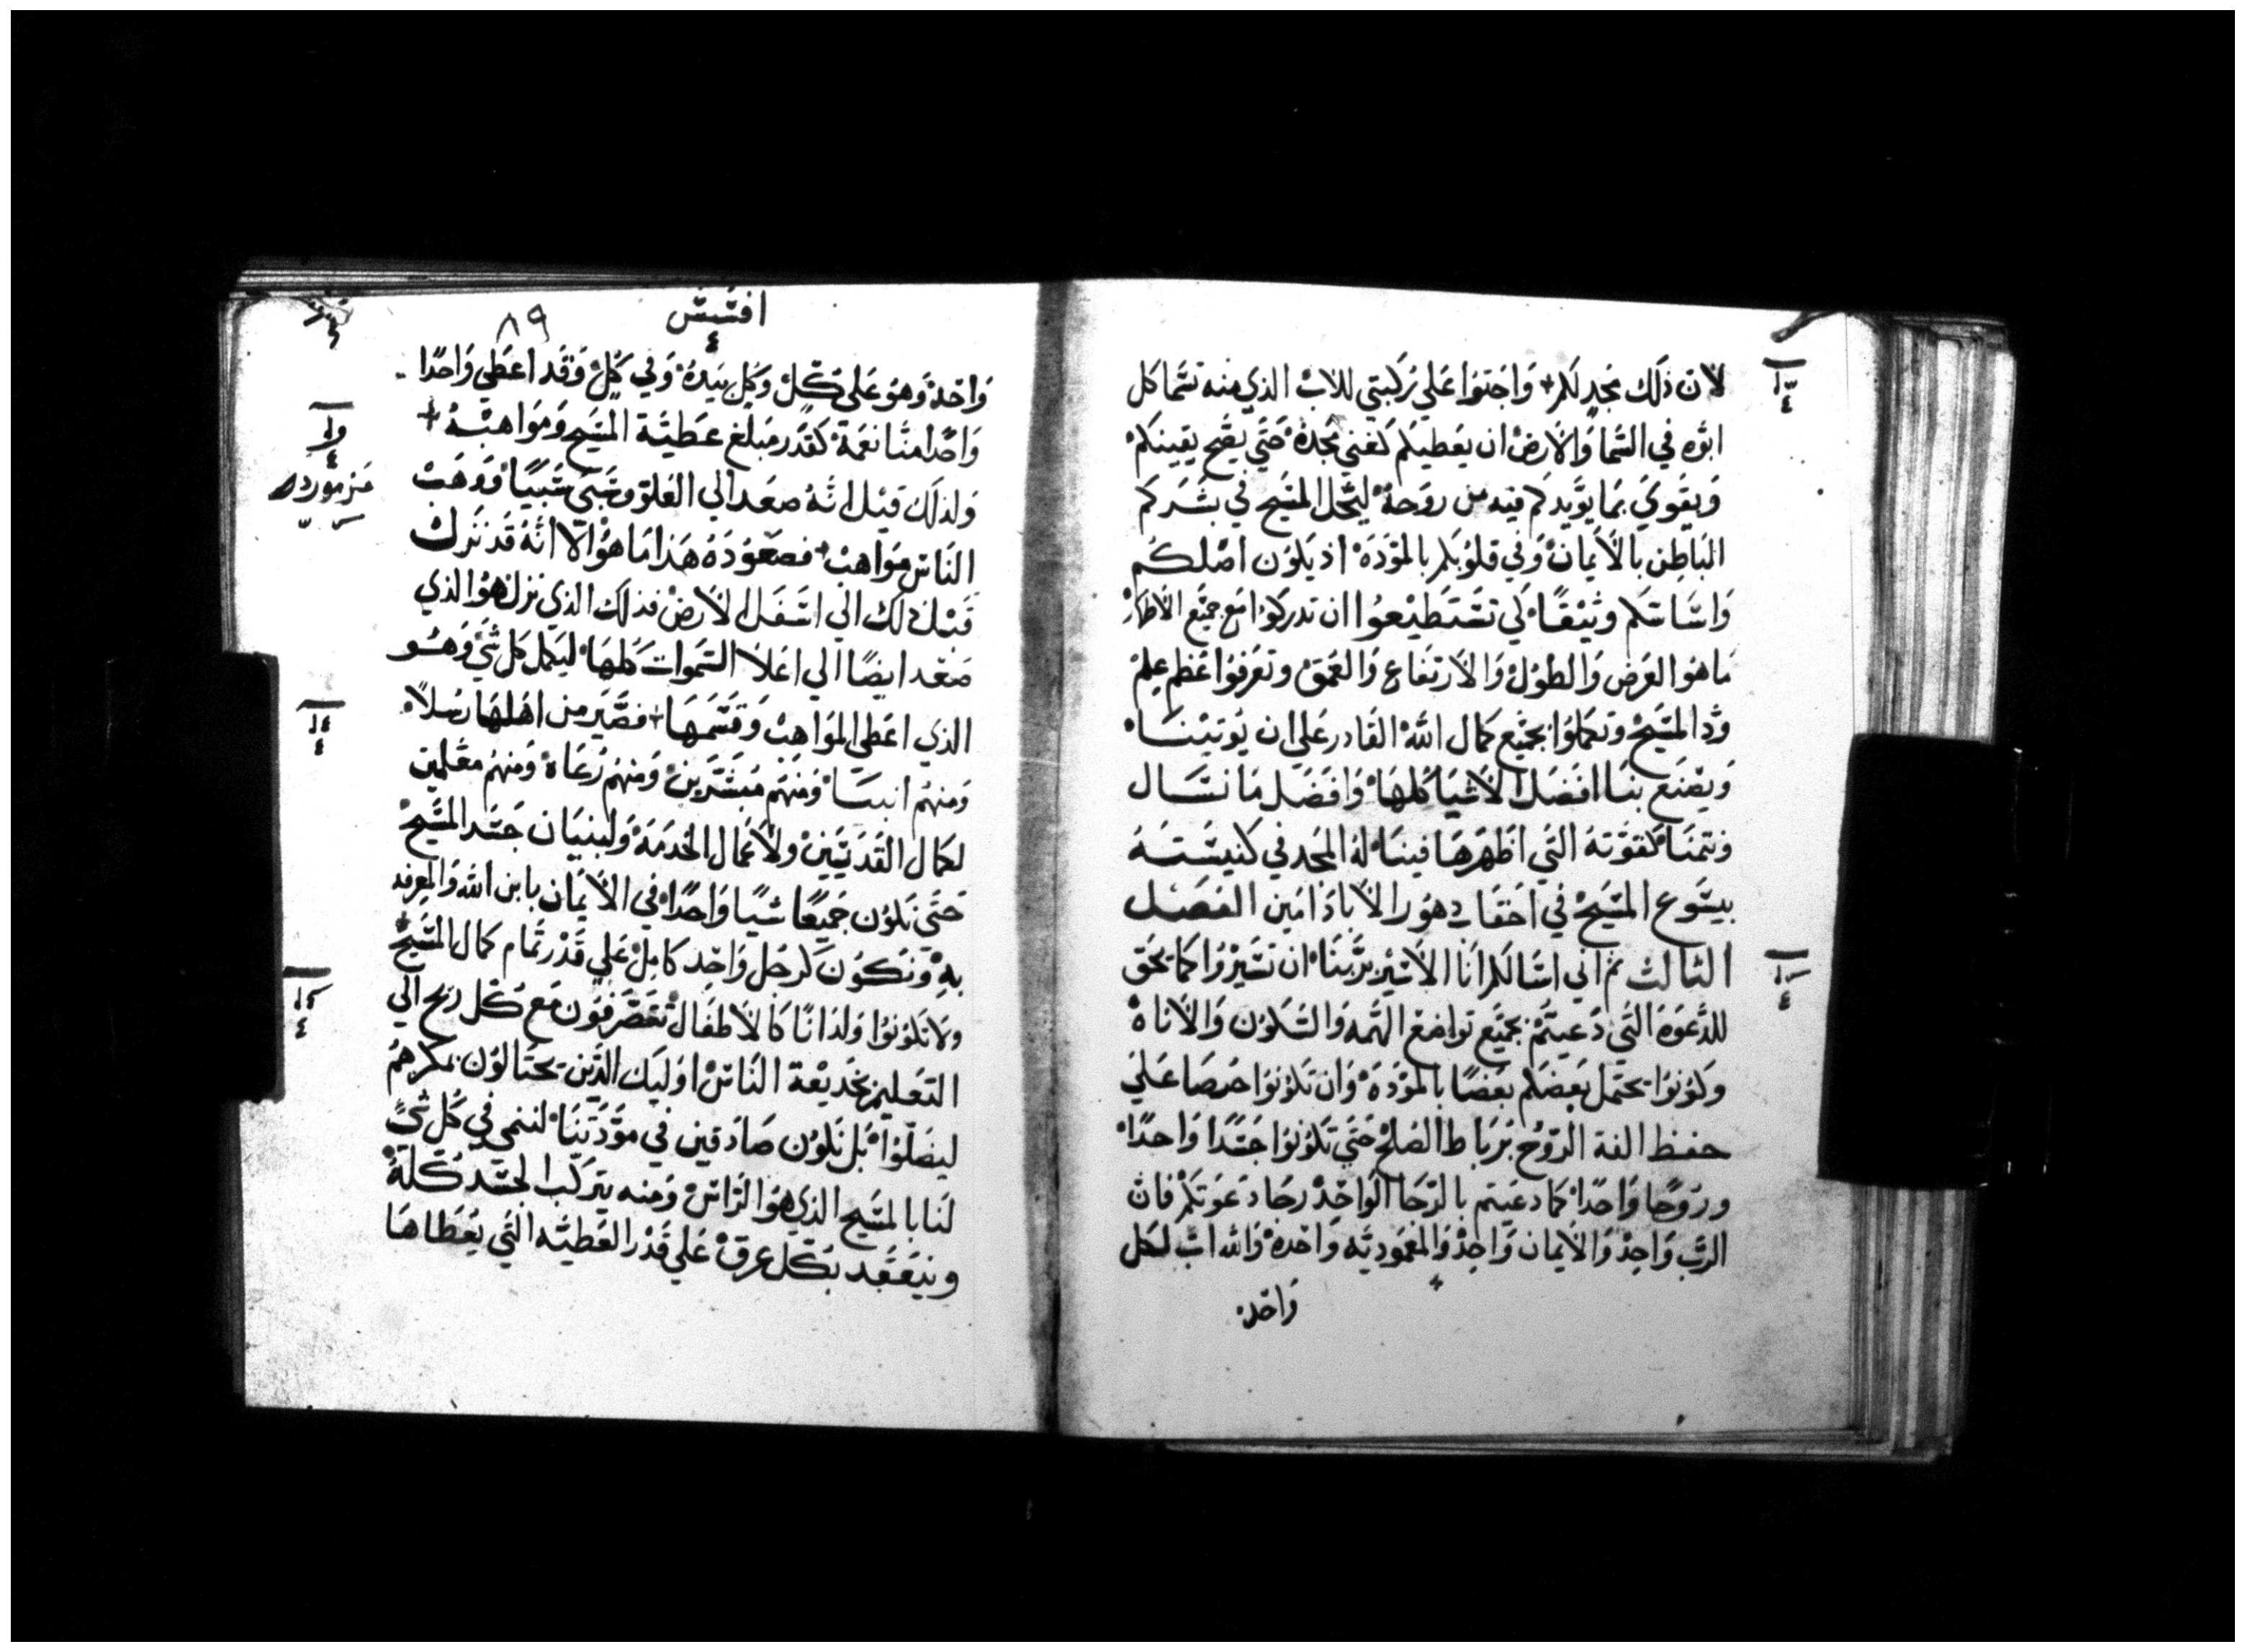 لان ذلك مجد لكم واجثوا علي ركبتي للاب الذي منه تسما كل
ابوه في السما والارض ان يعطيكم كغني مجده حتي يصح يقينكم
ويقوي بما يويدكم فيه من روحه ليحل المسيح في بشركم
الباطن بالايمان وفي قلوبكم بالموده اذ يكون اصلكم
واساسكم وثيقا كي تستطيعوا ان تدركوا مع جميع الاطهار
ما هو العرض والطول والارتفاع والعمق وتعرفوا عظم علم
ود المسيح وتكملوا بجميع كمال الله القادر علي ان يوتينا
ويصنع بنا افضل الاشيا كلها وافضل ما نسال
ونتمنا كقوته التي اظهرها فينا له المجد في كنيسته
بيسوع المسيح في احقاب دهور الاباد امين الفصل
الثالث ثم اني اسالكم انا الاسير بربنا ان تسيروا كما يحق
للدعوة التي دعيتم بجميع تواضع الهمه والسكون والاناة
وكونوا يحتمل بعضكم بعضا بالموده وان تكونوا حرصا علي
حفظ الفة الروح برباط الصلح حتي تكونوا جسدا واحدا
وروحا واحدا كما دعيتم بالرجا الواحد رجا دعوتكم فان
الرب واحد والايمان واحد والمعموديه واحده والله اب لكل
واحد
افسس
٤
٨٩
واحد وهو علي كل وبكل بيده وفي كل وقد اعطي واحدا
واحدا منا نعمة كقدر مبلغ عطية المسيح ومواهبه
ولذلك قيل انه صعد الي العلو وسبى سبيا ووهب
الناس مواهب فصعوده هذا ما هو الا انه قد نزل
قبل ذلك الي اسفل الارض فذلك الذي نزل هو الذي
صعد ايضا الي اعلا السموات كلها ليكمل كل شي وهو
الذي اعطي المواهب وقسمها فصير من اهلها رسلا
ومنهم انبيا ومنهم مبشرين ومنهم رعاة ومنهم معلمين
لكمال القديسين ولاعمال الخدمة ولبنيان جسد المسيح
حتي نكون جميعا شيا واحدا في الايمان بابن الله والمعرفه
به ونكون كرجل واحد كامل علي قدر تمام كمال المسيح
ولا نكونوا ولدانا كالاطفال تتصرفون مع كل ريح الي
التعليم بخديعة الناس اوليك الذين يحتالون بمكرهم
ليضلوا بل نكون صادقين في مودتنا لننمي في كل شي
لنا بالمسيح الذي هو الراس ومنه يتركب الجسد كله
وينعقد بكل عرق علي قدر العطيه التي يعطاها
مزمور